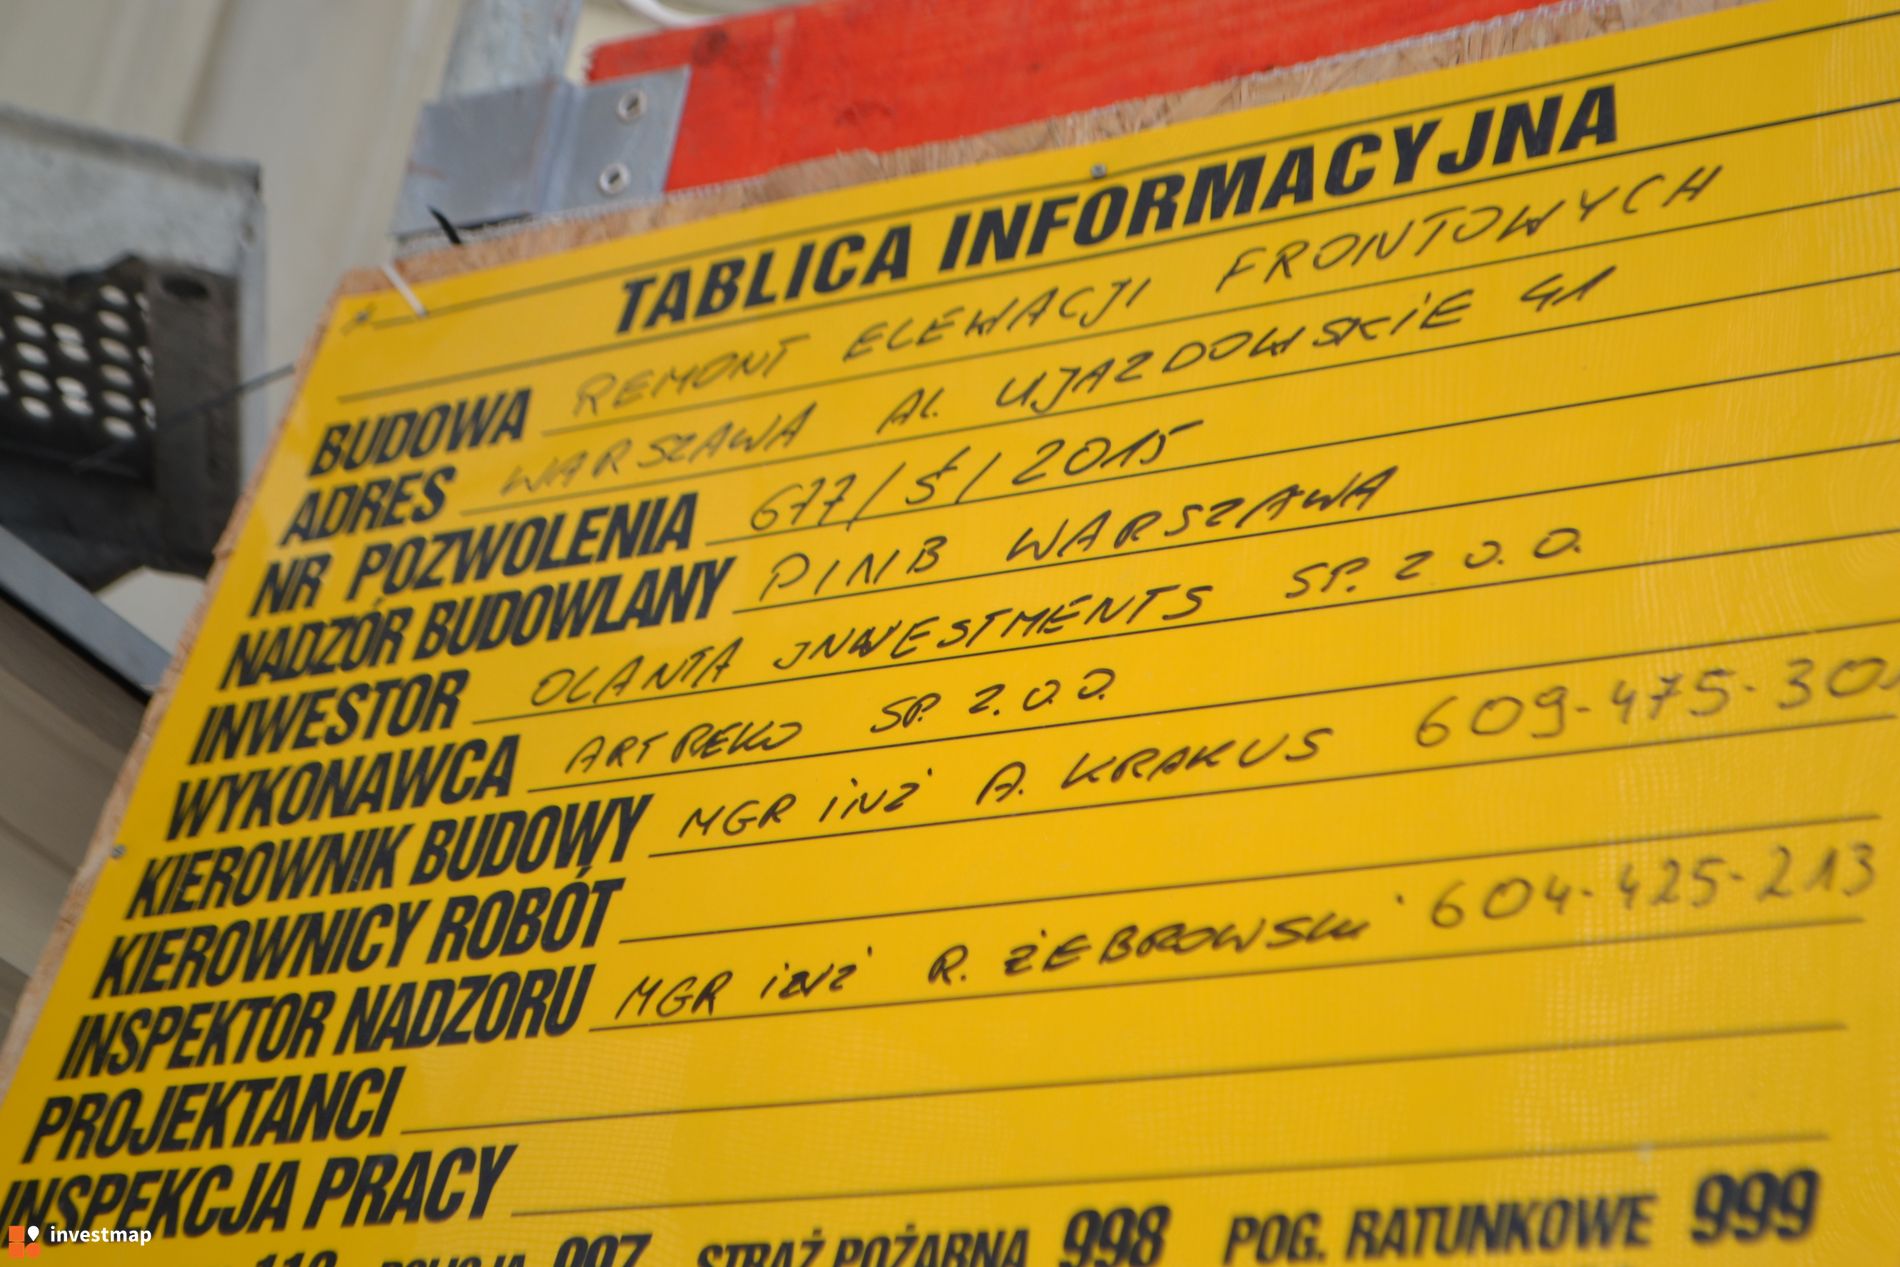 TABLICA INFORMACYJNA
BUDOWA REMONT ELEWACJI FRONTOWYCH
ADRES WARSZAWA AL. UJAZDOWSKIE 41
NR POZWOLENIA 677/Ś/2015
NADZÓR BUDOWLANY PINB WARSZAWA
INWESTOR OLANTA INWESTMENTS SP. Z O. O.
WYKONAWCA ARTREKO SP. Z. O. O.
KIEROWNIK BUDOWY MGR inż A. KRAKUS 609-475-30
KIEROWNICY ROBÓT
INSPEKTOR NADZORU MGR inż R. ŻEBROWSKI 604-425-213
PROJEKTANCI
INSPEKCJA PRACY
POLICJA 997 STRAŻ POŻARNA 998 POG. RATUNKOWE 999
investmap